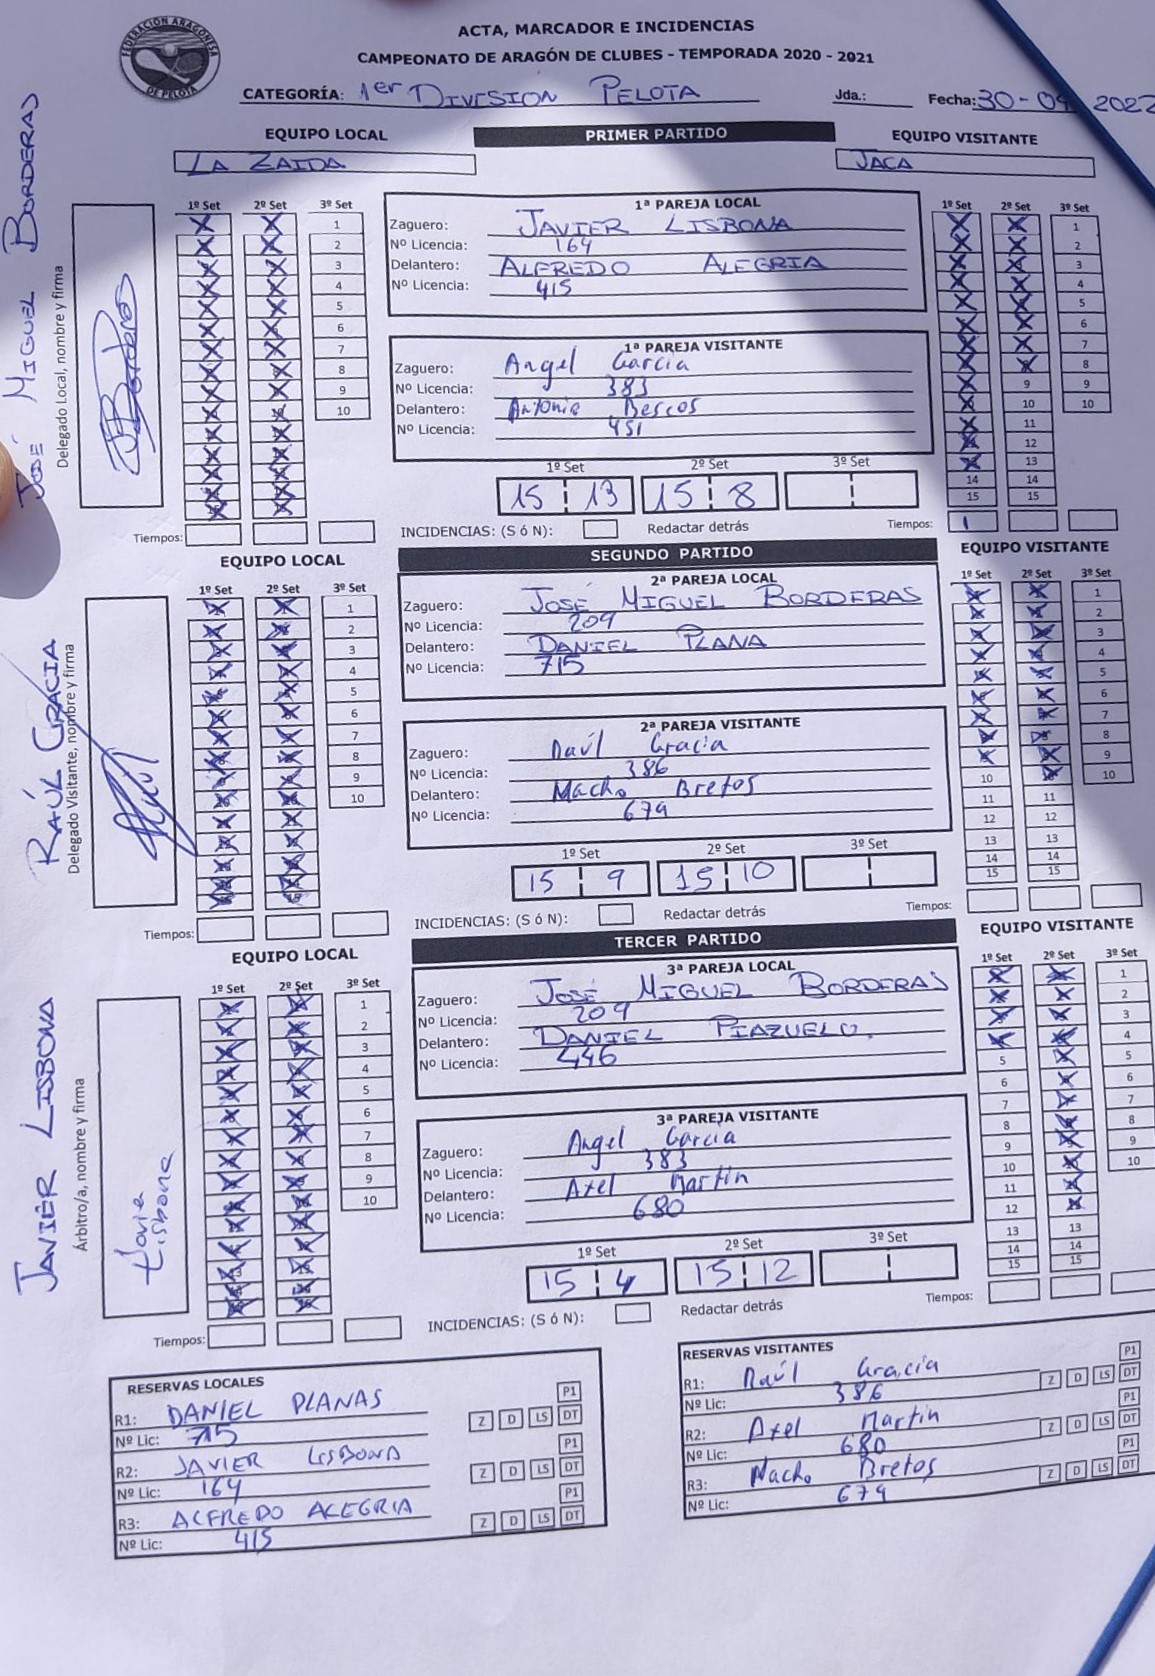 FEDERACIÓN ARAGONESA
DE PELOTA
ACTA, MARCADOR E INCIDENCIAS
CAMPEONATO DE ARAGÓN DE CLUBES - TEMPORADA 2020 - 2021
CATEGORÍA: 1er DIVISION PELOTA Jda.: Fecha: 30-04 2022
EQUIPO LOCAL PRIMER PARTIDO EQUIPO VISITANTE
LA ZAIDA JACA
1º Set 2º Set 3º Set
1
2
3
4
5
6
7
8
9
10
Tiempos:
1ª PAREJA LOCAL
Zaguero: JAVIER LISBONA
Nº Licencia: 164
Delantero: ALFREDO ALEGRIA
Nº Licencia: 415
1ª PAREJA VISITANTE
Zaguero: Angel Garcia
Nº Licencia: 383
Delantero: Antonio Bescos
Nº Licencia: 451
1º Set 2º Set 3º Set
15 13 15 8
INCIDENCIAS: (S ó N): Redactar detrás
1º Set 2º Set 3º Set
1
2
3
4
5
6
7
8
9 9
10 10
11
12
13
14 14
15 15
Tiempos: 1
JOSÉ MIGUEL BORDERAS
Delegado Local, nombre y firma
EQUIPO LOCAL SEGUNDO PARTIDO EQUIPO VISITANTE
1º Set 2º Set 3º Set
1
2
3
4
5
6
7
8
9
10
Tiempos:
2ª PAREJA LOCAL
Zaguero: JOSÉ MIGUEL BORDERAS
Nº Licencia: 209
Delantero: DANIEL PLANA
Nº Licencia: 715
2ª PAREJA VISITANTE
Zaguero: Raúl Gracia
Nº Licencia: 386
Delantero: Nacho Bretos
Nº Licencia: 679
1º Set 2º Set 3º Set
15 9 15 10
INCIDENCIAS: (S ó N): Redactar detrás
1º Set 2º Set 3º Set
1
2
3
4
5
6
7
8
9
10 10
11 11
12 12
13 13
14 14
15 15
Tiempos:
RAÚL GRACIA
Delegado Visitante, nombre y firma
EQUIPO LOCAL TERCER PARTIDO EQUIPO VISITANTE
1º Set 2º Set 3º Set
1
2
3
4
5
6
7
8
9
10
Tiempos:
3ª PAREJA LOCAL
Zaguero: JOSÉ MIGUEL BORDERAS
Nº Licencia: 209
Delantero: DANIEL PIAZUELO
Nº Licencia: 446
3ª PAREJA VISITANTE
Zaguero: Angel Garcia
Nº Licencia: 383
Delantero: Axel Martin
Nº Licencia: 680
1º Set 2º Set 3º Set
15 4 15 12
INCIDENCIAS: (S ó N): Redactar detrás
1º Set 2º Set 3º Set
1
2
3
4
5 5
6 6
7 7
8 8
9 9
10 10
11
12
13 13
14 14
15 15
Tiempos:
JAVIER LISBONA
Árbitro/a, nombre y firma
Javie Lisbona
RESERVAS LOCALES
R1: DANIEL PLANAS P1
Nº Lic: 715 Z D LS DT
R2: JAVIER LISBONA P1
Nº Lic: 164 Z D LS DT
R3: ALFREDO ALEGRIA P1
Nº Lic: 415 Z D LS DT
RESERVAS VISITANTES
R1: Raúl Gracia P1
Nº Lic: 386 Z D LS DT
R2: Axel Martin P1
Nº Lic: 680 Z D LS DT
R3: Nacho Bretos P1
Nº Lic: 679 Z D LS DT